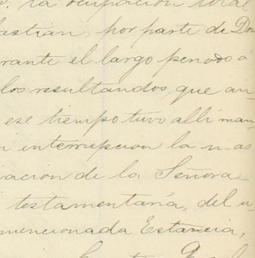 la ocupación
bastian, por parte de Don
rante el largo periodo á
los resultandos, que an
ese tiempo tuvo alli man
n interrupcion la mas
ración de la Señora
testamentaría, del
mencionada Estancia,